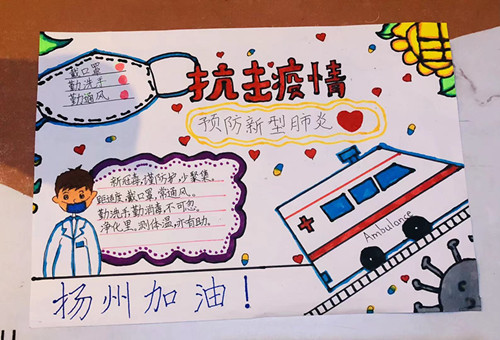 戴口罩
勤洗手
勤通风
抗击疫情
预防新型肺炎
新冠毒,谨防护,少聚集。
距适度,戴口罩,常通风。
勤洗手,勤消毒,不可忽。
净化里,测体温,亦有助。
Ambulance
扬州加油!